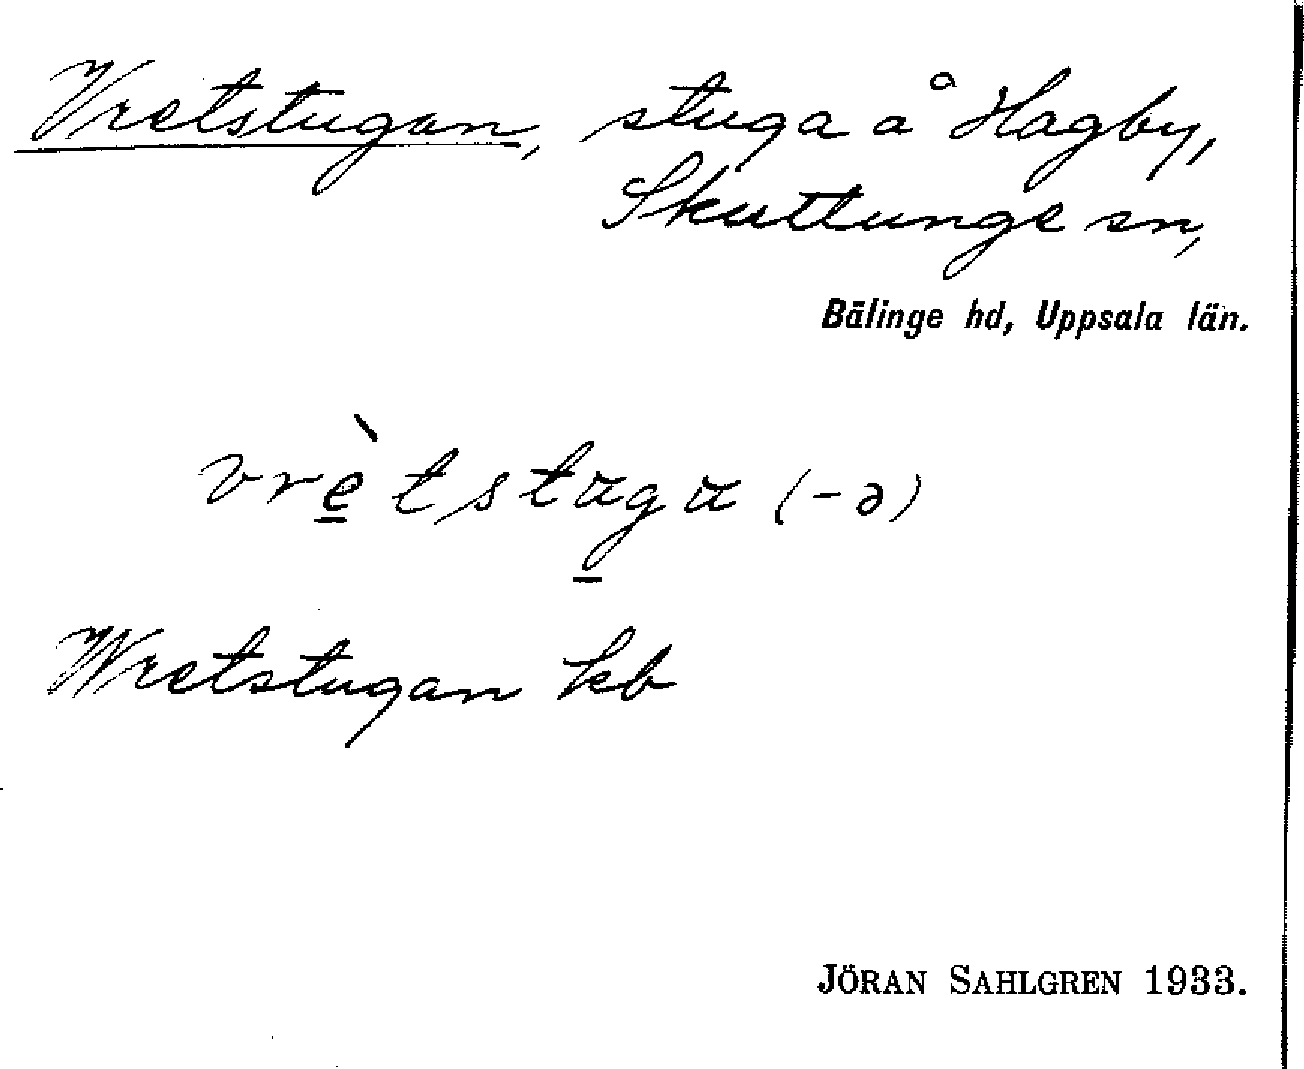 Vretstugan, stuga å Hagby,
Skuttunge sn,
Bälinge hd, Uppsala län.
vrètstuga (-ə)
Wretstugan kb
JÖRAN SAHLGREN 1933.